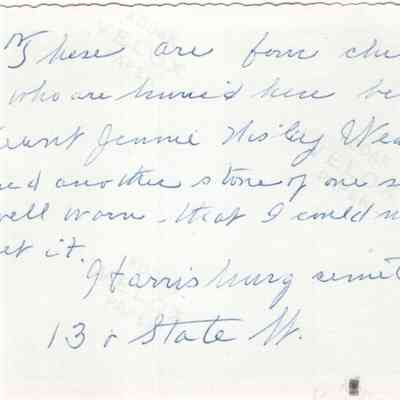 These are four chi
who are buried here be
Aunt Jennie Nisley Wea
ed another stone of one s
well worn that I could n
et it.
Harrisburg cemet
13 & State St.